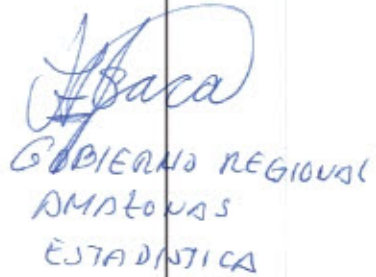 Baca
GOBIERNO REGIONAL
AMAZONAS
ESTADISTICA